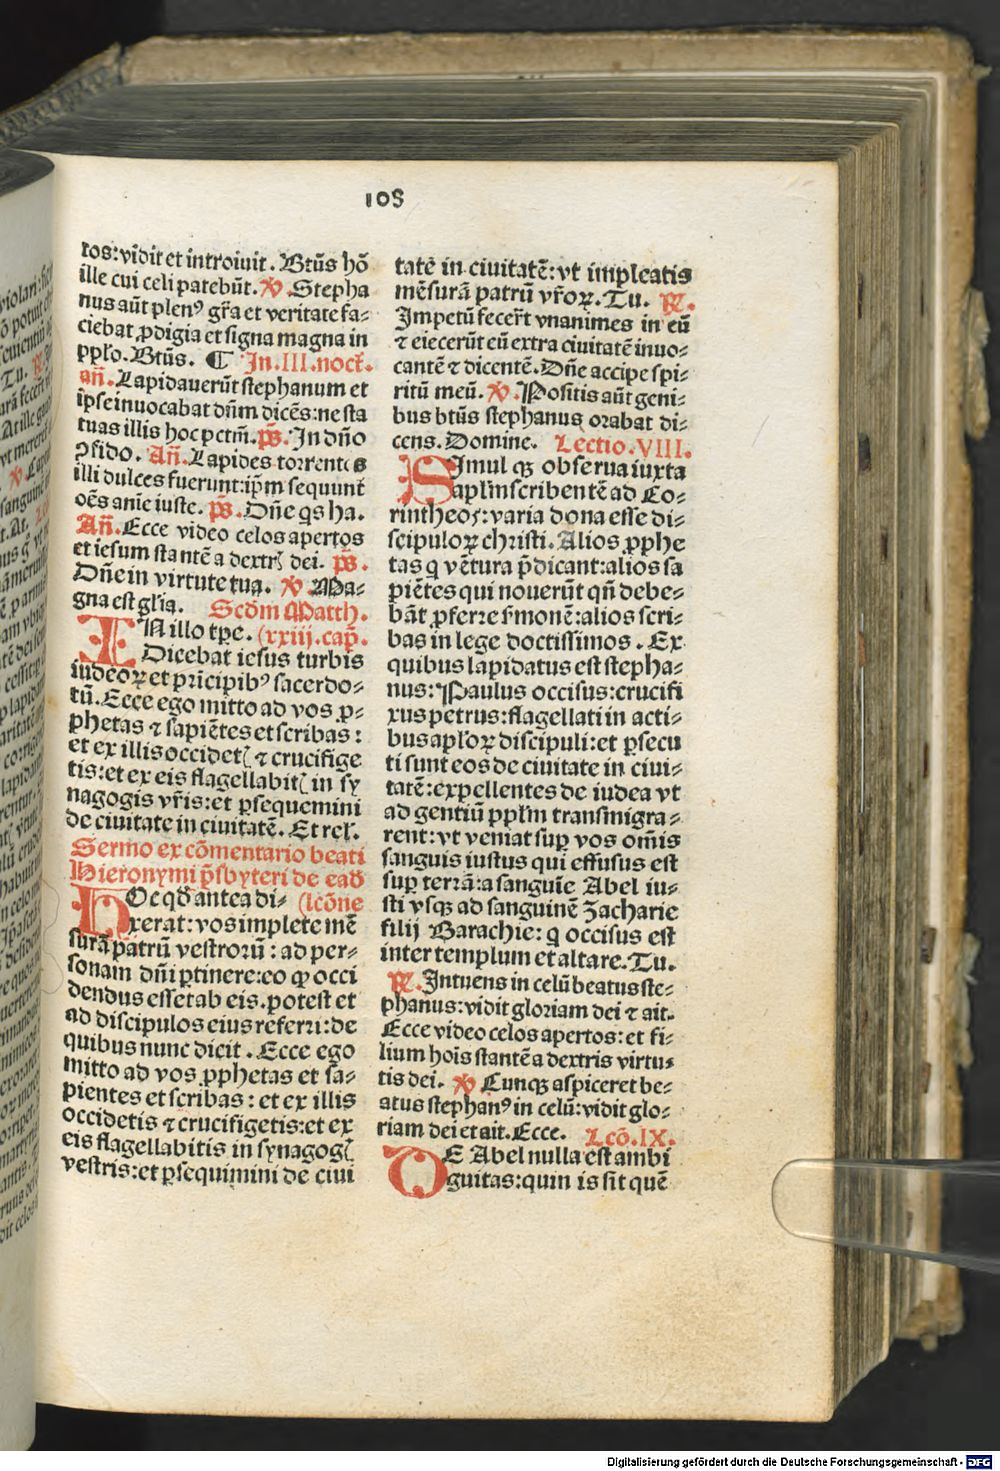 108
tos: vidit et introiuit. Btūs hō
ille cui celi patebūt. ℣ Stepha
nus aūt plenꝰ gr̃a et veritate fa⸗
ciebat ꝓdigia et signa magna in
ppl̓o. Btūs. ¶ In. III. nocť.
añ. Lapidauerūt stephanum et
ip̄e inuocabat dñm dicēs: ne sta
tuas illis hoc pctm̄. p̄s. In dño
ꝯfido. Añ. Lapides torrentes
illi dulces fuerunt: ip̄m sequunt̄
oēs anie iuste. p̄s. Dñe qs ha.
Añ. Ecce video celos apertos
et iesum stantē a dextrꝭ dei. p̄s.
Dñe in virtute tua. ℣ Ma⸗
gna est gl̓ia. Scdm̄ Matth.
IN illo tpe. (xxiij. cap̄.
Dicebat iesus turbis
iudeoꝝ et prīcipibꝰ sacerdo⸗
tū. Ecce ego mitto ad vos ꝓ⸗
phetas ⁊ sapiētes et scribas:
et ex illis occidetꝭ ⁊ crucifige
tis: et ex eis flagellabitꝭ in sy
nagogis vr̄is: et ꝑsequemini
de ciuitate in ciuitatē. Et rel̓.
Sermo ex cōmentario beati
Hieronymi p̄sbyteri de eadē
HOc qd̄ antea di⸗ (lcōne
xerat: vos implete mē
surā patrū vestrorū: ad per⸗
sonam dñi ꝑtinere: eo ꝙ occi
dendus esset ab eis. potest et
ad discipulos eius referri: de
quibus nunc dicit. Ecce ego
mitto ad vos ꝓphetas et sa⸗
pientes et scribas: et ex illis
occidetis ⁊ crucifigetis: et ex
eis flagellabitis in synagogꝭ
vestris: et ꝑsequimini de ciui
tatē in ciuitatē: vt impleatis
mēsurā patrū vr̄oꝝ. Tu. ℟.
Impetū fecer̄t vnanimes in eū
⁊ eiecerūt eū extra ciuitatē inuo⸗
cantē ⁊ dicentē. Dñe accipe spi⸗
ritū meū. ℣. Positis aūt geni⸗
bus btūs stephanus orabat di⸗
cens. Domine. Lectio. VIII.
SImul qꝫ obserua iuxta
apl̓m scribentē ad Co⸗
rintheos: varia dona esse di⸗
scipuloꝝ christi. Alios ꝓphe
tas q̄ vētura p̄dicant: alios sa
piētes qui nouerūt qn̄ debe⸗
bāt ꝓferre s̓monē: alios scri⸗
bas in lege doctissimos. Ex
quibus lapidatus est stepha⸗
nus: Paulus occisus: crucifi
xus petrus: flagellati in acti⸗
bus apl̓oꝝ discipuli: et ꝑsecu
ti sunt eos de ciuitate in ciui⸗
tatē: expellentes de iudea vt
ad gentiū ppl̓m transmigra⸗
rent: vt veniat suꝑ vos om̄is
sanguis iustus qui effusus est
suꝑ terrā: a sanguie Abel iu⸗
sti vsqꝫ ad sanguinē Zacharie
filij Barachie: q̄ occisus est
inter templum et altare. Tu.
℟. Intuens in celū beatus ste⸗
phanus: vidit gloriam dei ⁊ ait.
Ecce video celos apertos: et fi⸗
lium hoīs stantē a dextris virtu⸗
tis dei. ℣ Cunqꝫ aspiceret be⸗
atus stephanꝰ in celū: vidit glo⸗
riam dei et ait. Ecce. Lcō. IX.
DE Abel nulla est ambi
guitas: quin is sit quē
Digitalisierung gefördert durch die Deutsche Forschungsgemeinschaft - DFG